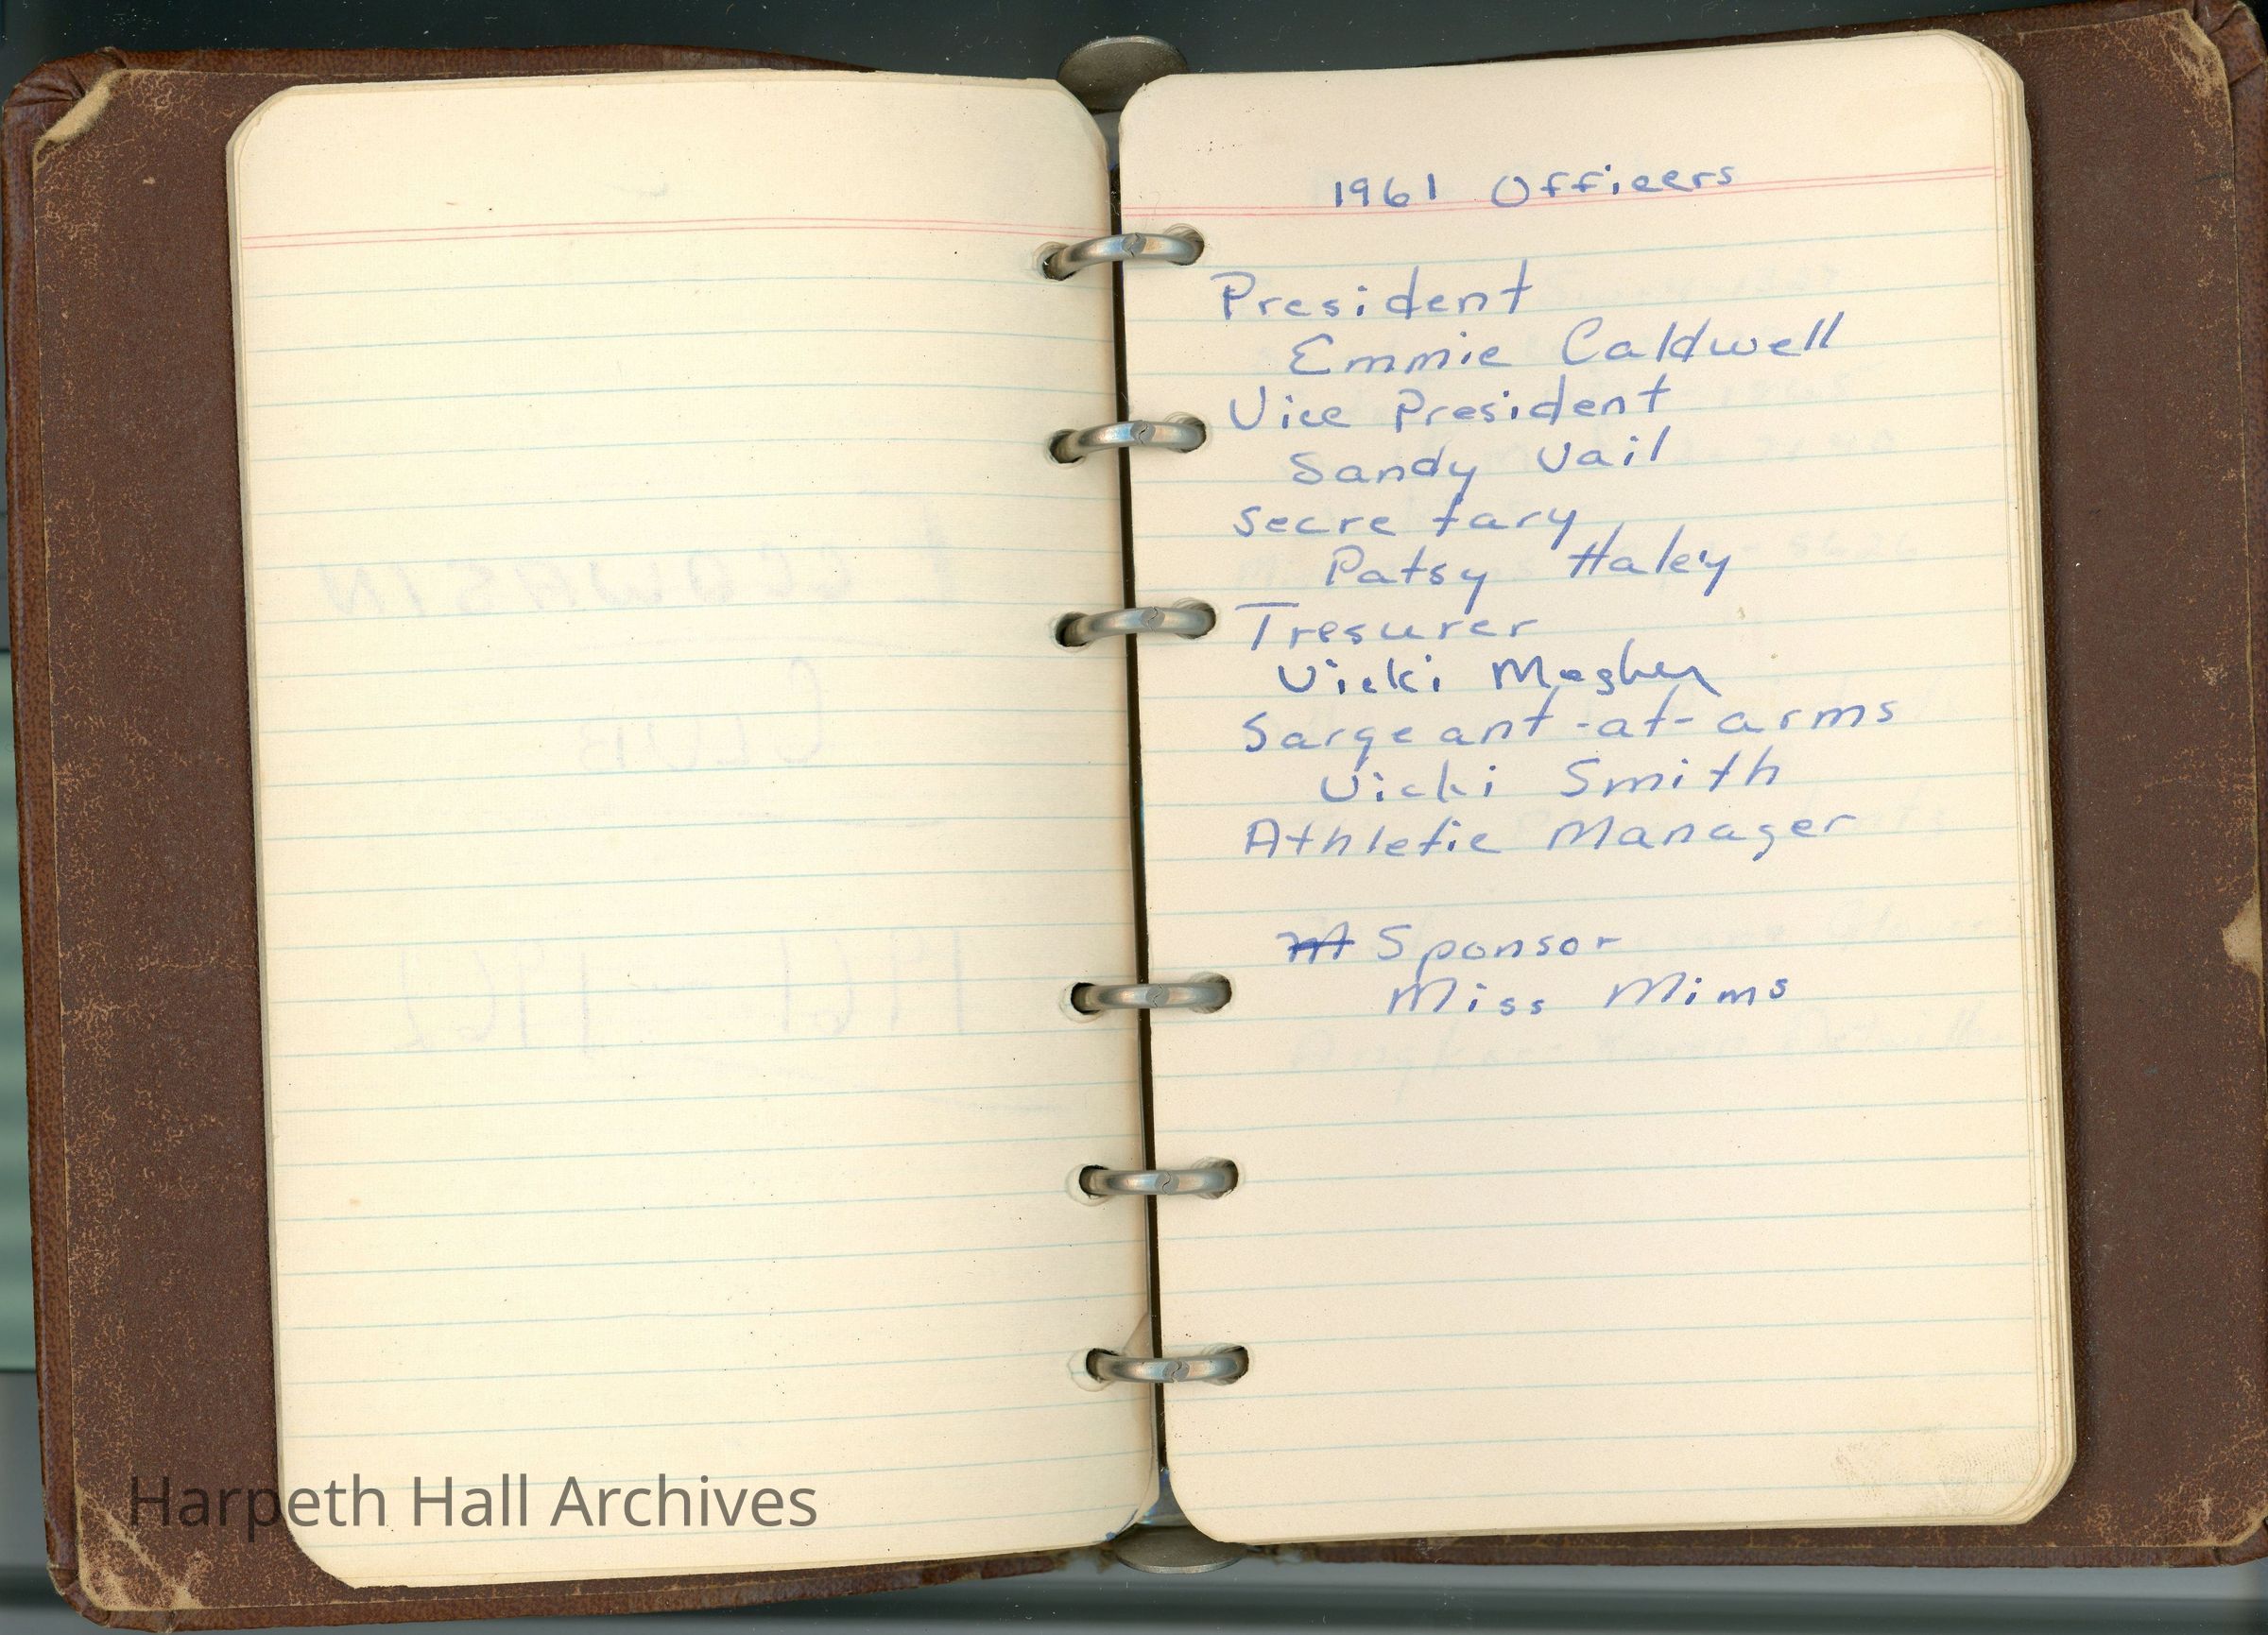 1961 Officers
President
Emmie Caldwell
Vice President
Sandy Vail
Secretary
Patsy Haley
Tresurer
Vicki
Sargeant-at-arms
Vicki Smith
Athletic Manager
Sponsor
Miss Mims
CLUB
1961-1962
Harpeth Hall Archives